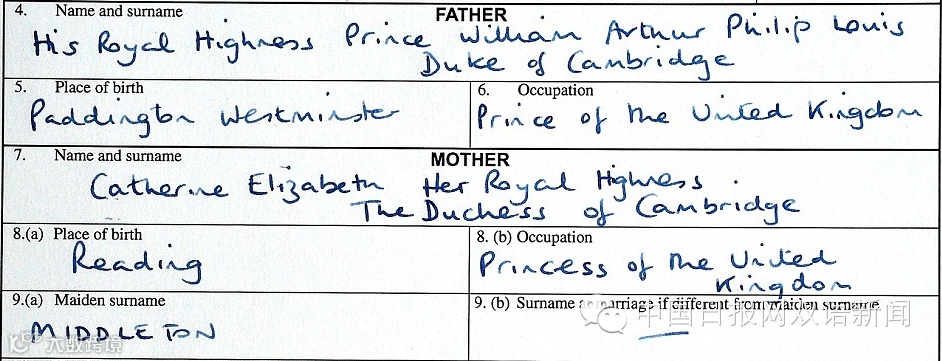 4. Name and surname FATHER
His Royal Highness Prince William Arthur Philip Louis
Duke of Cambridge
5. Place of birth
Paddington Westminster
6. Occupation
Prince of the United Kingdom
7. Name and surname MOTHER
Catherine Elizabeth Her Royal Highness
The Duchess of Cambridge
8.(a) Place of birth
Reading
8. (b) Occupation
Princess of the United
Kingdom
9.(a) Maiden surname
MIDDLETON
9. (b) Surname at marriage if different from maiden surname
—
中国日报网双语新闻
大数跨境